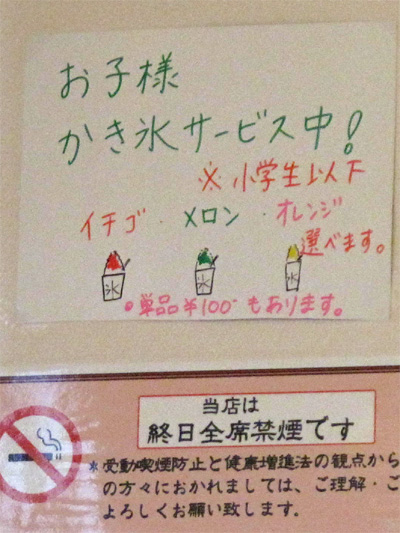 お子様
かき氷サービス中!
※小学生以下
イチゴ・メロン・オレンジ
選べます。
氷 氷 氷
・単品¥100-もあります。
当店は
終日全席禁煙です
*受動喫煙防止と健康増進法の観点から
の方々におかれましては、ご理解・ご
よろしくお願い致します。